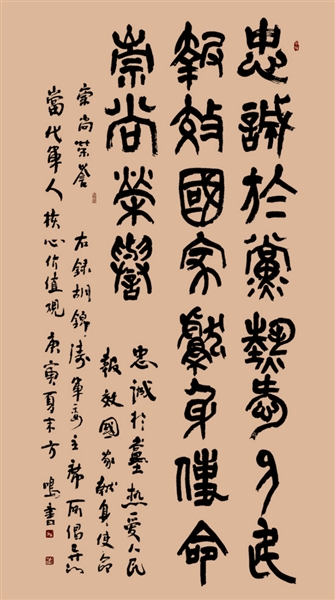 忠誠於黨熱愛人民
報效國家獻身使命
崇尚榮譽
忠诚於黨热爱人民
報效國家献身使命
崇尚荣誉 右録胡錦涛軍委主席所倡导
當代軍人核心价值观 庚寅夏末方鳴書